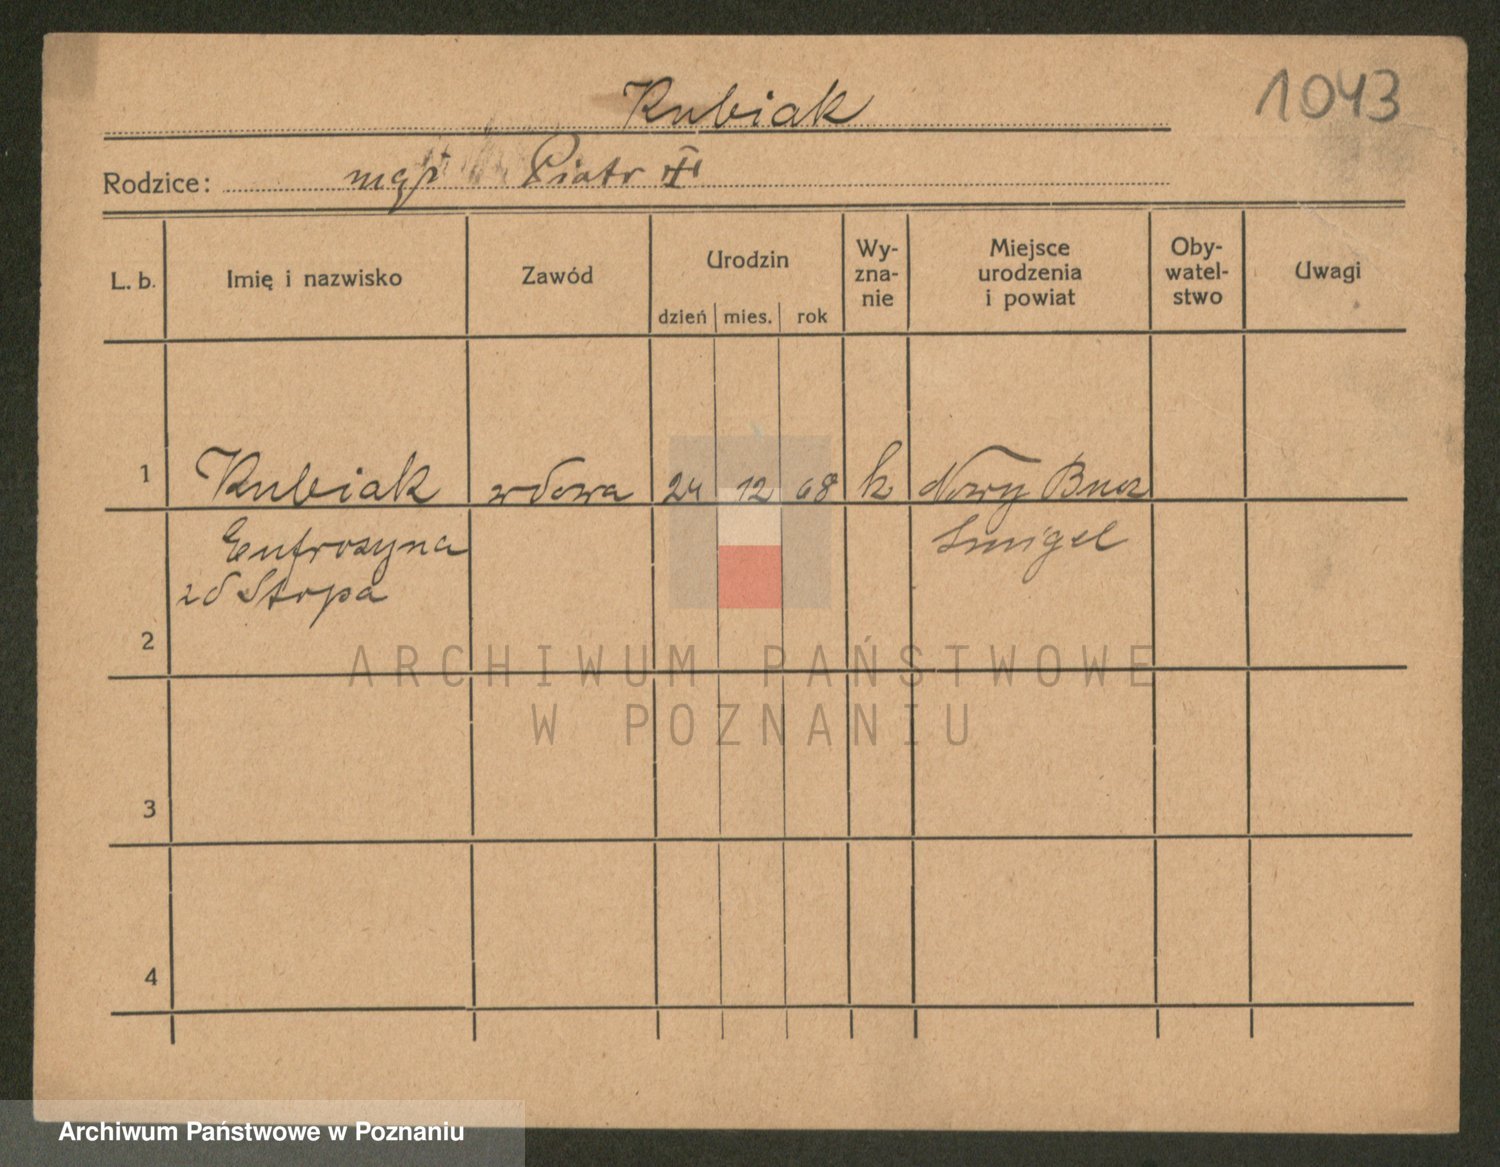 Kubiak
1043
Rodzice: mąż Piotr
L. b. Imię i nazwisko Zawód Urodzin Wy-zna-nie Miejsce urodzenia i powiat Oby-watel-stwo Uwagi
dzień mies. rok
1 Kubiak wdowa 24 12 68 k Nowy Bucz
Eufrozyna Śmigel
zd Stopa
2
3
4
ARCHIWUM PAŃSTWOWE
W POZNANIU
Archiwum Państwowe w Poznaniu